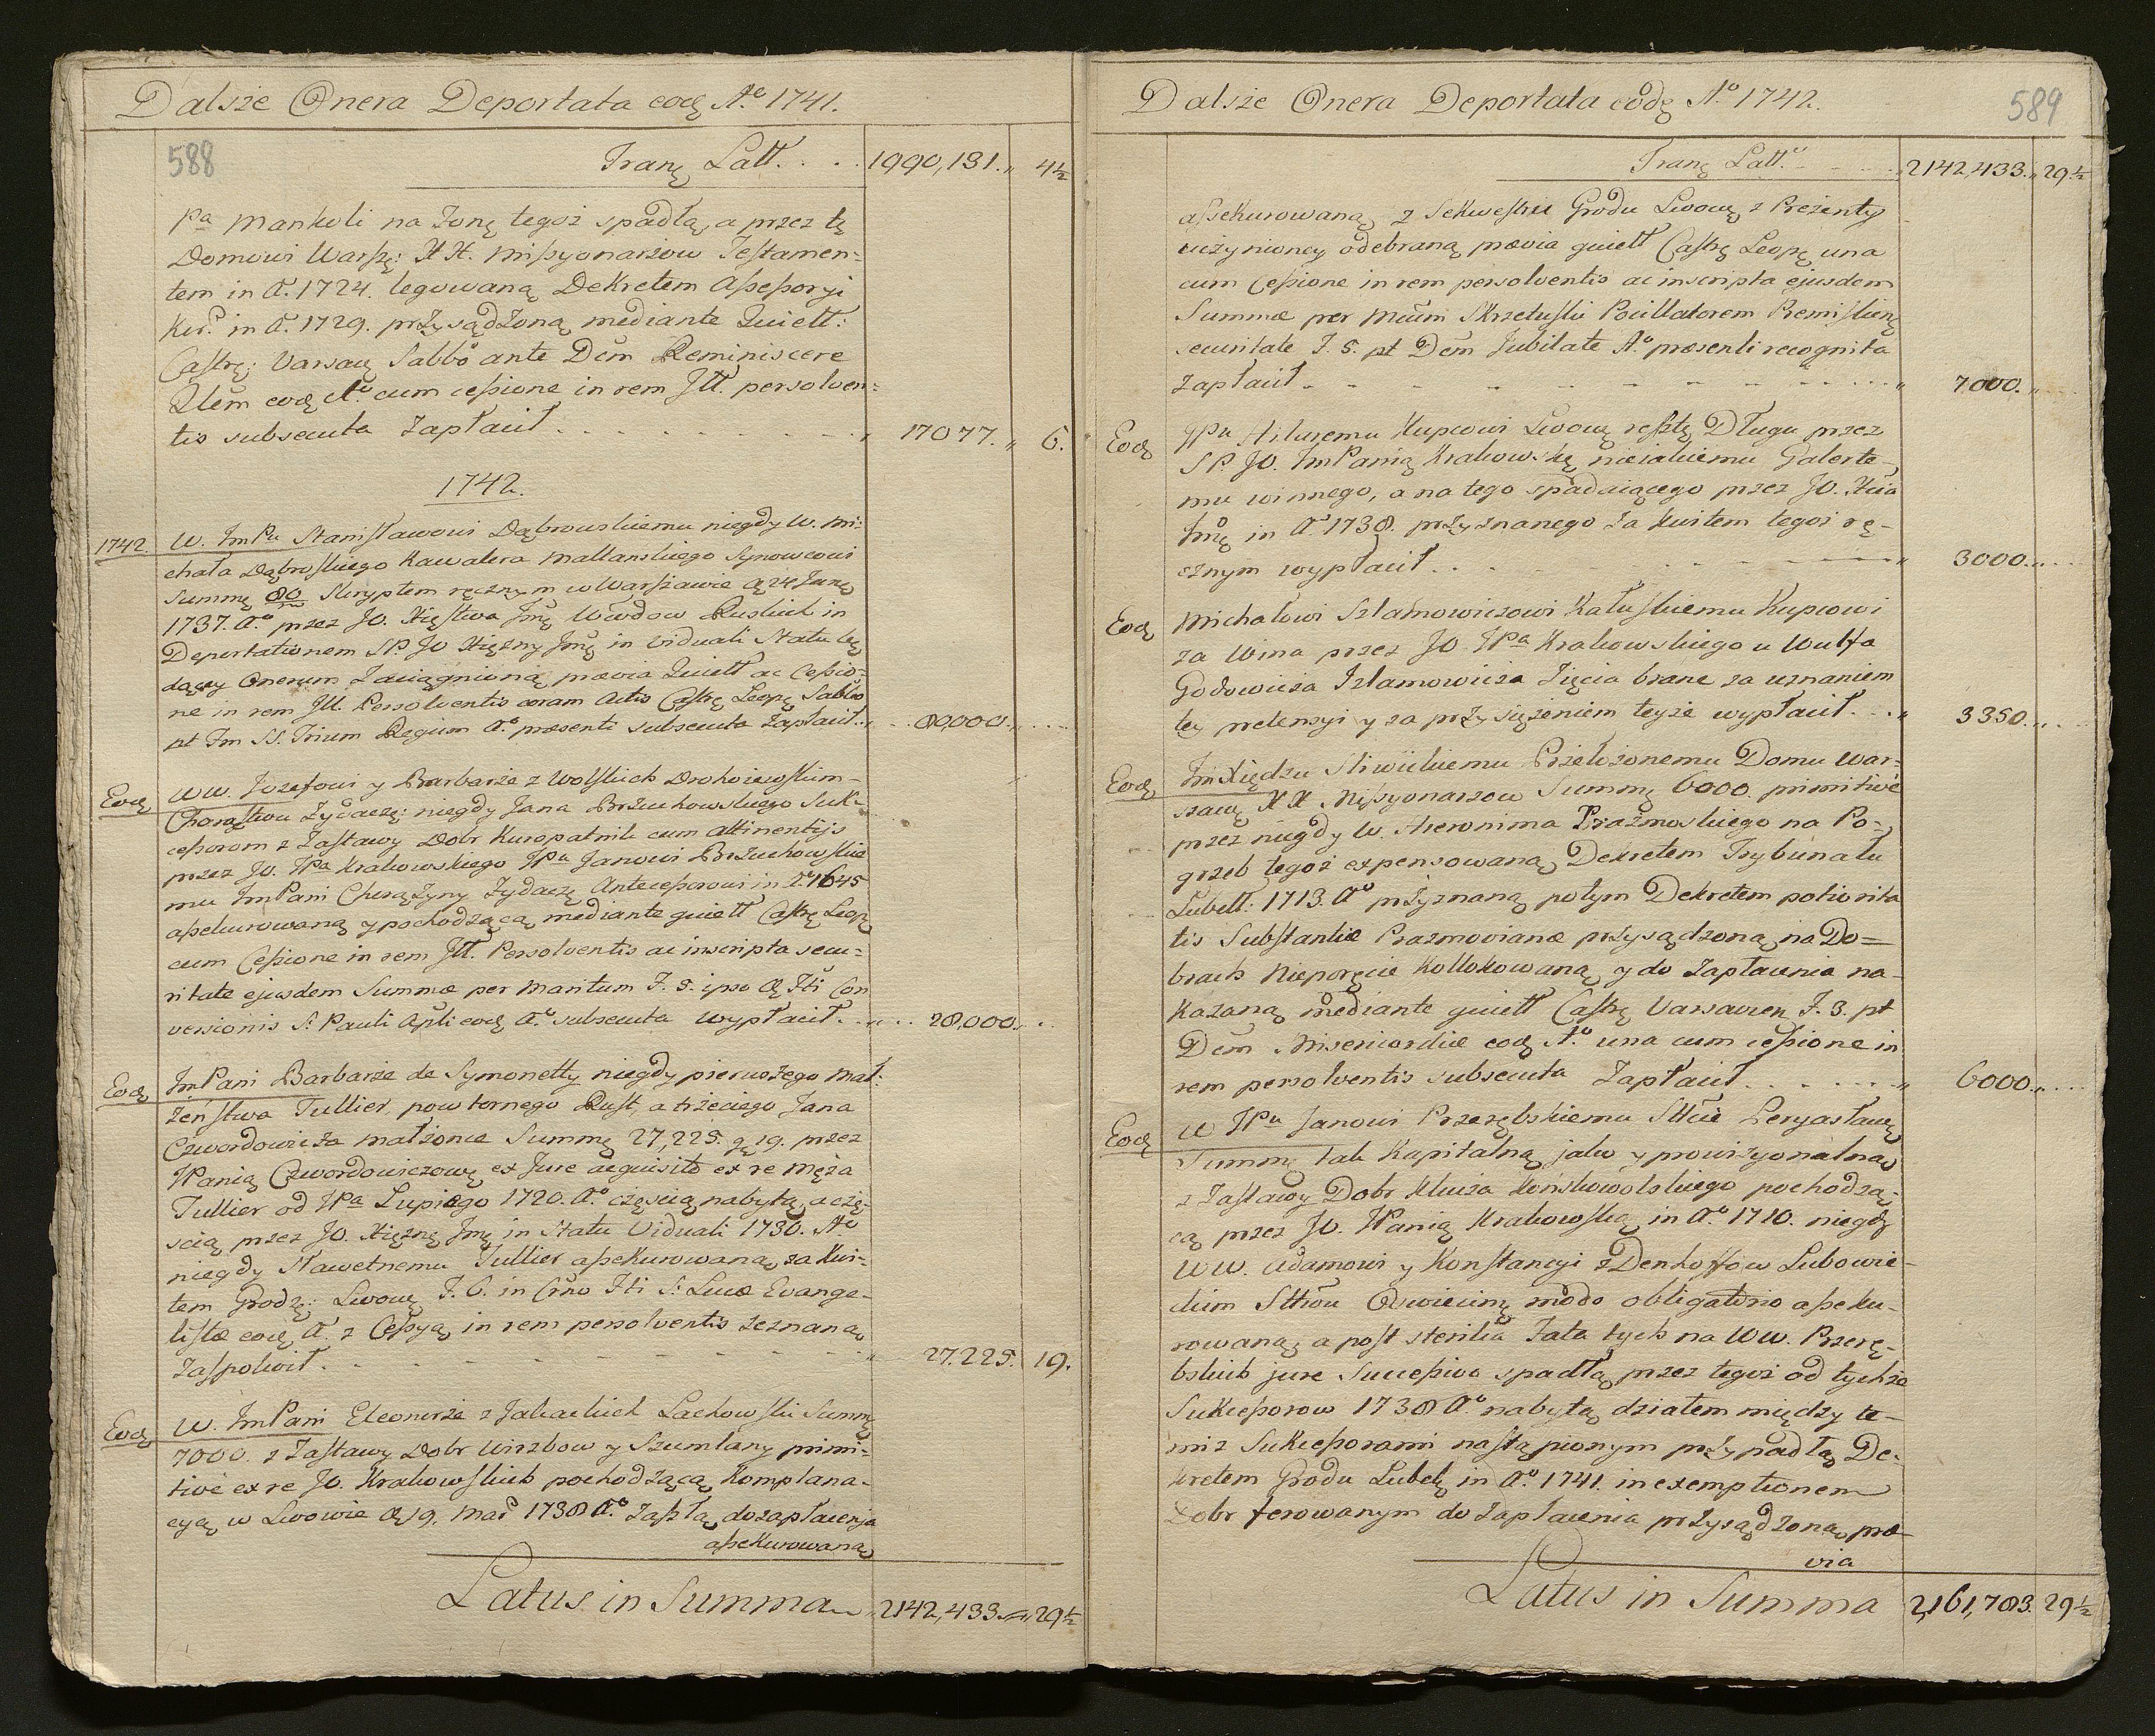 Dalsze Onera Deportata eodę Aº 1741.
588
Tranę Latt. . . . 1990,131.,, 4½
Pa Mankoli na Żonę tegoż spadłą, a przez tę
Domowi Warszę: XX. Missyonarzow Testamen=
tem in Aº. 1724. legowaną Dekretem Assessoryi
Kor. in Aº. 1729. przysądzoną mediante Quiett:
Castrę: Varsaę Sabbo ante Dom Reminiscere
Qłem eodę Aº cum cessione in rem Jll. persolven=
tis subsecuta Zapłacił . . . . . . . . . ,, 17077.,, 6.
1742.
1742. W. JmPu Stanisławowi Dąbrowskiemu niegdy W. Mi=
chała Dąbroskiego Kawalera Maltanskiego Synowcowi
Summę 80/m Skryptem ręcznym w Warszawie dę 24 Junę
1737. Aº przez JO. Xięstwa Jmę Wdow Ruskich in
Deportationem SP. JO Xiężny Jmę in viduali Statu bę
dącey Onerum Zaciągnioną prævia Quiett ac Cessio=
ne in rem Jll. Persolventis coram Actis Castrę Leopę Sabbo
pt Fm SS. Trium Regum Aº præsenti subsecuta Zapłacił. ,, . . 80,000.,, . . .
Eodę WW. Jozefowi y Barbarze z Wolskich Drohoiewskim
Chorąstwu Żydaczę: niegdy Jana Brzuchowskiego Suk=
cessorom z Zastawy Dobr Kuropatnik cum attinentijs
przez JO. JPa Krakowskiego JPu Janowi Brzuchowskie
mu JmPani Chorążyny Żydaczę Antecessorowi in Aº 1645
assekurowaną y pochodzącą, mediante quiett Castrę Leopę
cum Cessione in rem Jll. Persolventis ac inscripta secu=
ritate ejusdem Summæ per Maritum F. 5. ipso dę Fti Con
versionis S: Pauli Apli eodę Aº. subsecuta wypłacił. . ,, . . 28,000. . .
Eodę JmPani Barbarze de Symonetty niegdy pierwszego Mał=
żeństwa Tullier, powtornego Rust, a trzeciego Jana
Czwordowicza małżonce Summę 27,225. gę 19. przez
JPanią Czwordowiczowę ex Jure acquisito ex re męża
Tullier od JPa Lupiego 1720. Aº. częscią nabytą, a czę=
scią przez JO. Xiężnę Jmę in Statu Viduali 1730. Aº
niegdy Sławetnemu Tullier assekurowaną, za Kwi=
tem Grodzę: Lwowę F. 6. in Crno Fti S: Lucæ Evange=
listæ eodę Aº. z Cessyą in rem persolventis zeznaną
Zaspokoił. . . . . . . . . . ,, 27.225. 19.
Eodę W. JmPani Eleonorze z Jabackich Lachowski Summę
7000. z Zastawy Dobr Wirzbow y Szumlany primi=
tive ex re JO. Krakowskich pochodzącą, Komplana=
cyą w Lwowie dę 19. Mar 1738 Aº. Zaszłą, do zapłacenia
assekurowaną
Latus in Summa ,, 2142,433.,, 29½
Dalsze Onera Deportata eodę Aº 1742.
589
Tranę Latt. . . . . ,, 2142,433.,, 29½
assekurowaną, z Sekwestru Grodu Lwowę z Prezenty
uczynioney odebraną prævia quiett Castrę Leopę una
cum Cessione in rem persolventis ac inscripta ejusdem
Summæ per Mtum Skrzetuski Pocillatorem Premislienę
securitate F. 5. pt Dom Jubilate Aº. præsenti recognita
Zapłacił . . . . . . . . . . ,, 7,000.,, . . .
Eodę JPu Kupcowi Lwowę resztę Długu przez
SP. JO. JmPanią Krakowskę nieiakiemu Galerte=
mu winnego, a na tego spadaiącego przez JO. Xcia
Jmę in Aº 1738. przyznanego za kwitem tegoż rę=
cznym wypłacił . . . . . . . . ,, 3000.,, . . .
Eodę Michałowi Szlamowiczowi Kałuskiemu Kupcowi
za Wina przez JO JPa Krakowskiego u Wulfa
Godowicza Szlamowicza Zięcia brane za uznaniem
tey pretensyi y za przysiężeniem teyże wypłacił. . . ,, 3350.,, . .
Eodę JmXiędzu Sliwickiemu Przełożonemu Domu War=
szawę XX Missyonarzow Summę 6000. primitive
przez niegdy W. Hieronima Prażmoskiego na Po=
grzeb tegoż expensowaną, Dekretem Trybunału
Lubett: 1713. Aº przyznaną potym Dekretem potiorita
tis Substantiæ Prazmovianæ przysądzoną, na Do=
brach Nieporęcie Kollokowaną, y do Zapłacenia na=
kazaną, mediante quiett Castrę Varsavien F. 3. pt
Dom Misericordiæ eodę Aº. una cum cessione in
rem persolventis subsecuta Zapłacił . . . . . . ,, 6000.,, . . .
Eodę W JPu Janowi Przerębskiemu Sttcie Peryasławę
Summę tak Kapitalną, jako y prowizyonalną
z Zastawy Dobr Klucza Końskowolskiego pochodzą=
cą przez JO. JPanią Krakowską in Aº. 1710. niegdy
WW. Adamowi y Konstancyi z Denhoffow Lubowie=
ckim Sttwu Oswiecimę modo obligatorio asseku=
rowaną, a post sterilia Fata tych na WW. Przerę=
bskich jure Successivo spadłą, przez tegoż od tychże
Sukcessorow 1738 Aº. nabytą działem między te=
miż Sukcessorami nastąpionym przypadłą, De=
kretem Grodu Lubelę in Aº. 1741. in exemptionem
Dobr ferowanym do Zapłacenia przysądzoną, præ=
via
Latus in Summa 2,161,783. 29½